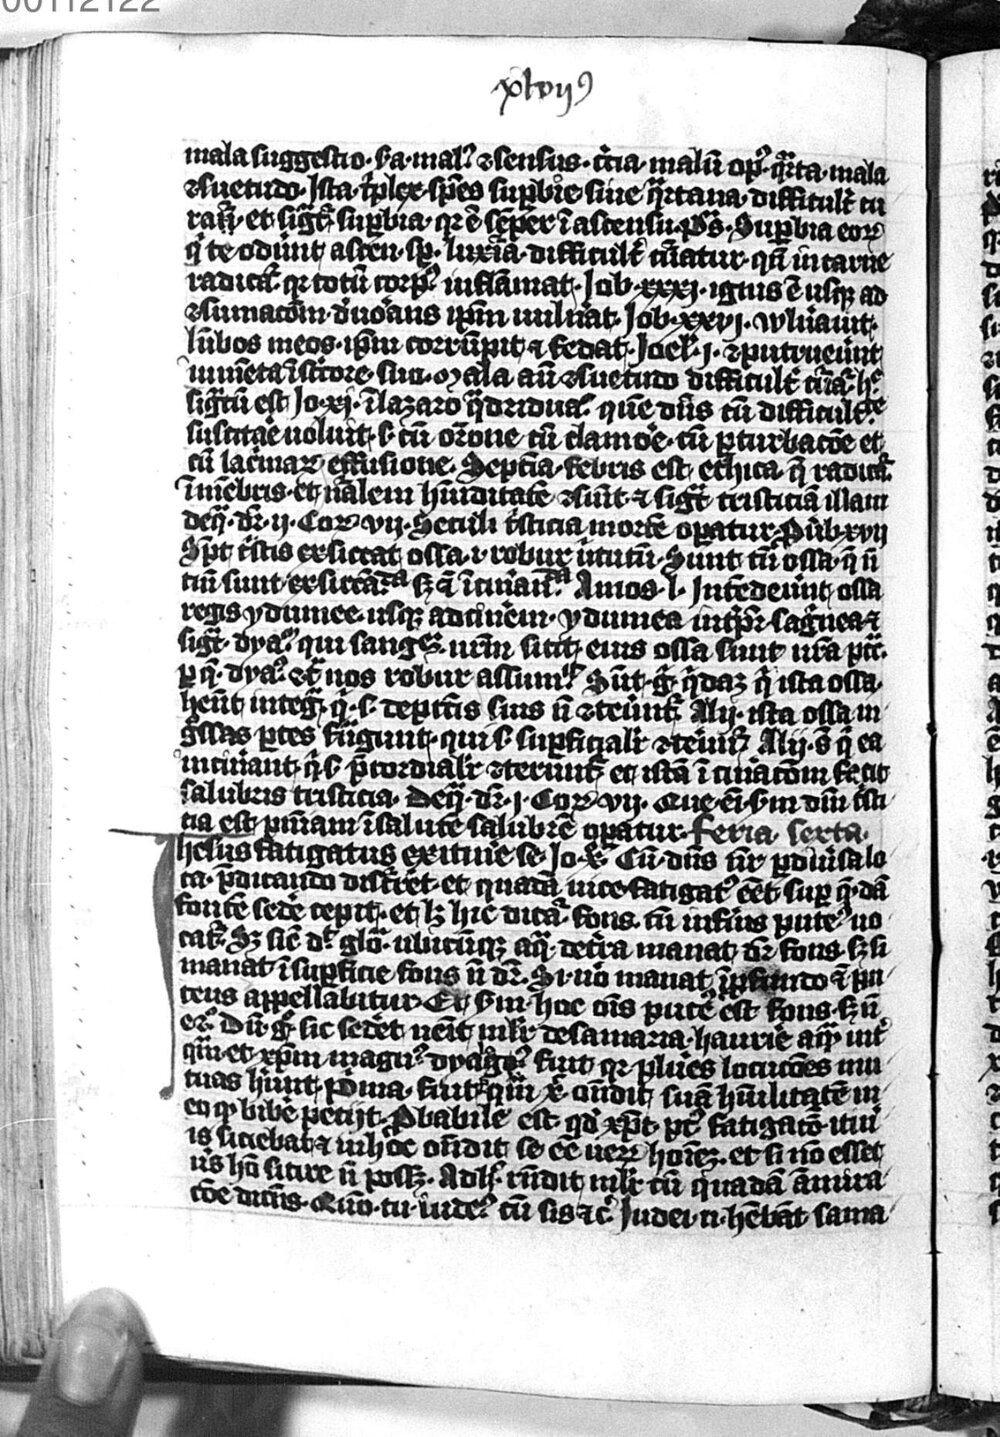 00112122
xlvij
mala suggestio · s̄a · mal᷒ ꝯsensus · t̄cia · malū op᷒ · q̄rta · mala
ꝯsuetudo · Ista · t̄plex · sp̄es suꝑbie siue q̄rtana · difficult̄ cu
rat̄ · et siḡt suꝑbia · qr ē semper ī ascensu · p̄s · Suꝑbia eoꝝ
q̄ te odūnt ascen · sꝑ · luxīa · difficult̄ cūatur · qn̄ in carne
radicat̄ · qr totū corp᷒ inflāmat · Job · xxxj · ignis ē usqꝫ ad
ꝯsumacōm · dūorans ip̄m uulnāt · Job · xxvj · wlnāuit ·
lūbos meos · ip̄m corrūpit ⁊ fedat · Joel · j · ꝯputruerūnt
iumēta ī stercore suo · Mala aūt ꝯsuetudo difficult̄ cūat̄ · h᷒
sig̃tū est Jo · xj · ī lazaro q̄driduā᷒ · quē dn̄s cū difficultate
suscitar̄e uoluit · s · cū or̄one cū clamoēe · cū ꝑturbacōe et
cū lac̄maꝝ effusione · Septīa · febris est ethica · q̄ radicat̄
ī mēbris · et nālem hūiditatē ꝯsūit · ⁊ sig̃t tristiciā illam
de q̄ · dr̄ · ij · Cor · vij · Seculi t̄sticia mortē opatur · Pūb · xvij
Spt̄ t̄stis exsiccat ossa · i · robur ūtutū · Sunt tn̄ ossa · q̄ n̄
tm̄ sunt exsiccāda · sꝫ ⁊ ī cin̄anda · Amos · i · Intenderūnt ossa
regis ydumee · usqꝫ ad cin̄em · ydumea int̄pr̄ · sagn̄ea · ⁊
sig̃t · dya᷒ · qui sang᷒ · nr̄m sitit · eius ossa sunt nr̄a pcc̄
ꝑ q̄ · dya᷒ · ⁊t̄ nos robur assumit · Sūt g̃ q̄daꝫ q̄ ista ossa ·
hēnt integ̃ · q̄ · s · de pctīs suis n̄ ꝯterūnt̄ · Alij · ista ossa in
g̃ssas ꝑtes frāgunt · qui · s · suꝑficialr̄ ꝯterūnt̄ · Alij · s̄ q̄ ea
incin̄ant · q̄ · s · p̄cordialr̄ ꝯterūnt̄ · et istā ī cin̄acōm facit
salubris tristicia · De q̄ · dr̄ · j · Cor · vij · Que · ē · s̄m dm̄ t̄sti
cia est · pn̄iam ī salutē salubrē opatur · Feria · sexta ·
Ihesus fatigatus ex itin̄e se · Jo · Cū · dn̄s nr̄ ꝑ diūsa lo
ca · p̄dicando discurrēt · et quadā uice · fatigat᷒ eēt · suꝑ q̄ · dā
fontē sedē cepit · et lꝫ hic dicat̄ · fons · tn̄ infius pute᷒ uo
cat̄ · Sꝫ sic dt̄ glō · ubicūqꝫ aq̄ · de tr̄a manat · dr̄ fons · sꝫ si
manat ī suꝑficie fons n̄ dr̄ · Si · uō manat ī ꝓfundo ⁊ pu
teus appellabitur · Et s̄m · hoc oīs pute᷒ est fons · sꝫ n̄
eō · Dū · g̃ · sic sedēt uēit mlr̄ de samaria · haurīe aq̄ int̄
q̄m · et xp̄m magn᷒ · dyalog᷒ fuit qr plūes locucōes mu
tuas hūnt · Pima · fuit q̄m · on̄dit suā hūilitatē in
eo qꝫ bibē petijt · Pbabile est · qd̄ xp̄t · pt᷒ fatigacō · itin̄
is siciebat ⁊ in hoc on̄dit se eē ueꝝ hoīeꝫ · et si nō esset
uis hō sitire n̄ posꝫ · Ad h᷒ · rn̄dit mlr̄ cū quadā āmira
cōe dicēs · Quō · tu · iude᷒ cū sis ⁊c · Judei · n · hēbāt sama